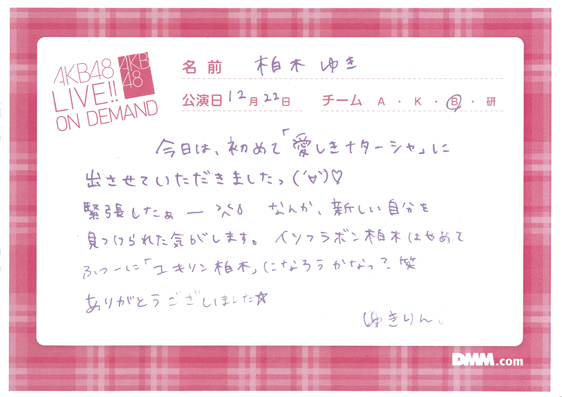 AKB48
LIVE!!
ON DEMAND
AKB
48
名前 柏木ゆき
公演日 12月22日 チーム A・K・B・研
今日は、初めて「愛しきナターシャ」に
出させていただきましたっ(´∀`)♡
緊張したぁー >^< なんか、新しい自分を
見つけられた気がします。イソフラボン柏木はやめて
ふつーに「ユキリン柏木」になろうかなっ?笑
ありがとうございました☆
ゆきりん。
DMM.com